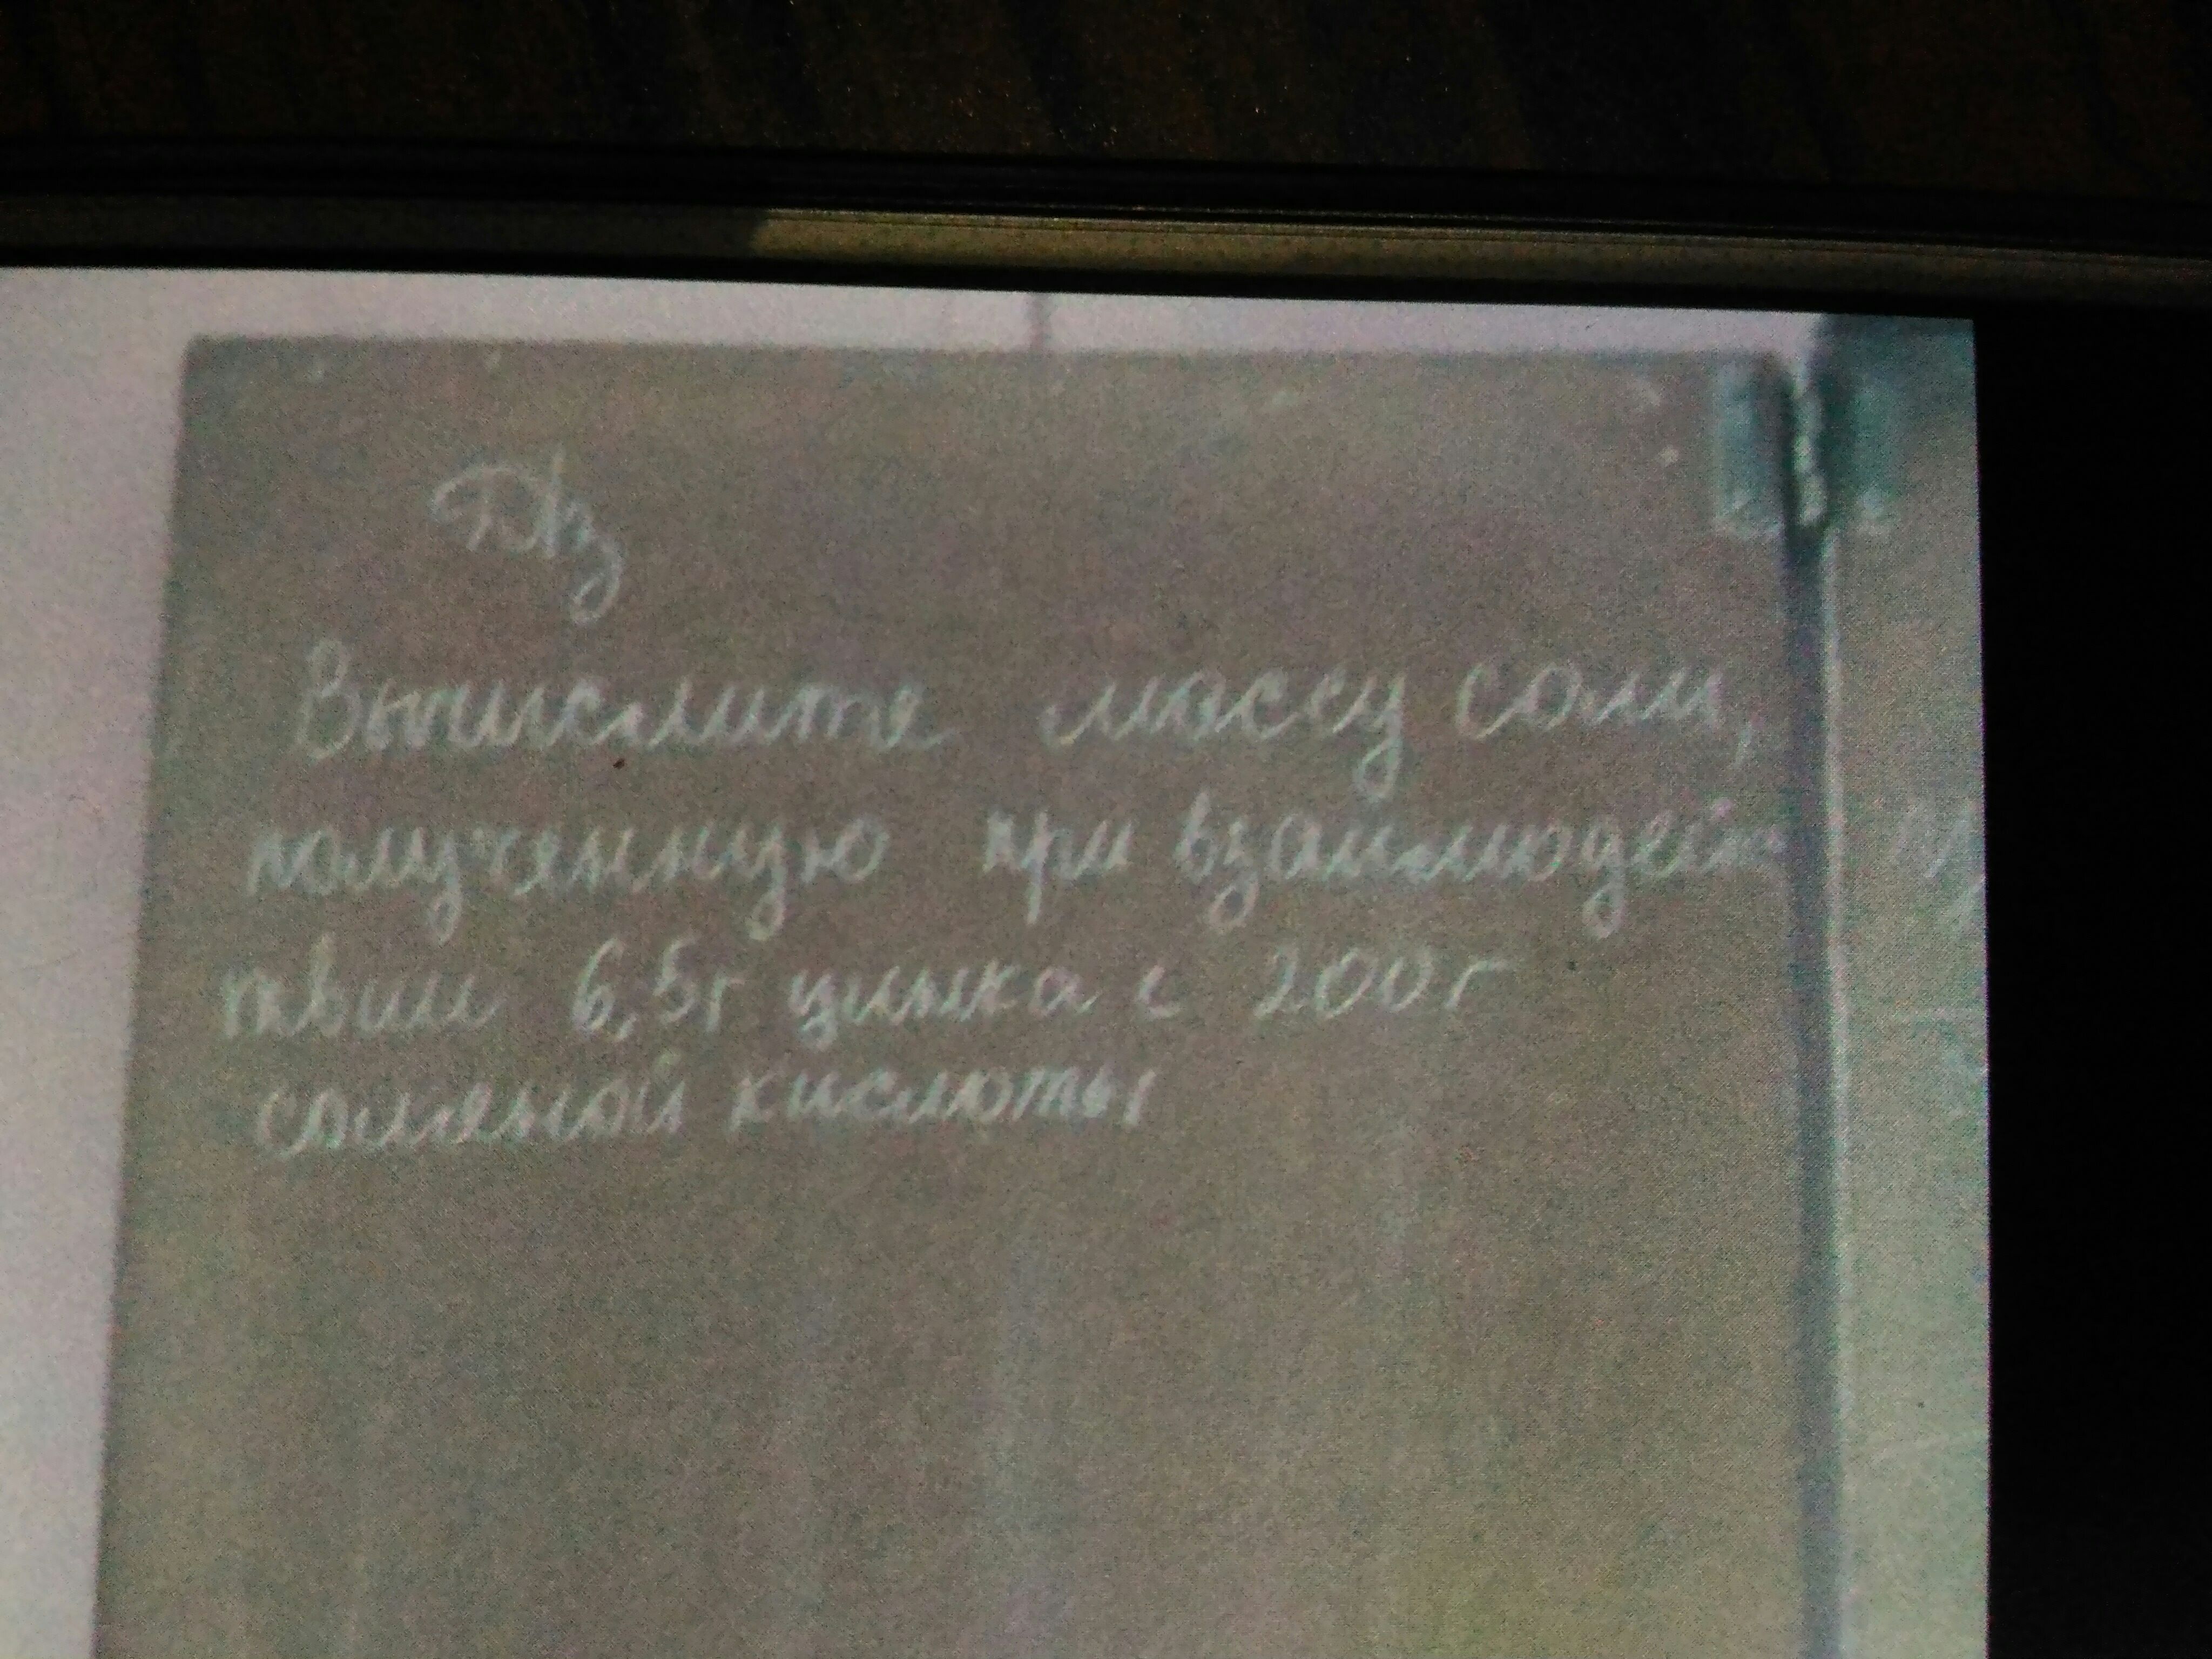 Д/з
Вычислите массу соли,
полученную при взаимодейс
твии 6,5г цинка с 200г
соляной кислоты